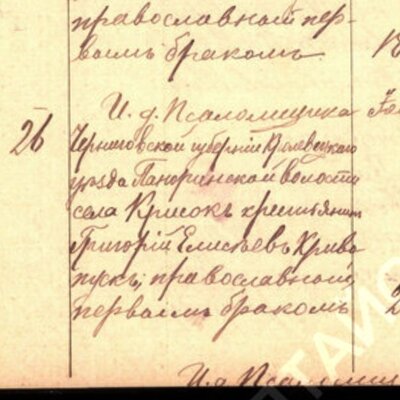 православный пер-
вымъ бракомъ.
26
И. д. Псаломщика
Черниговской губернiи Кролевецкаго
уѣзда Понорницкой волости
села Крисокъ крестьянинъ
Григорiй Елисѣевъ Криво
пускъ, православный,
первымъ бракомъ
И. д. Псаломщи